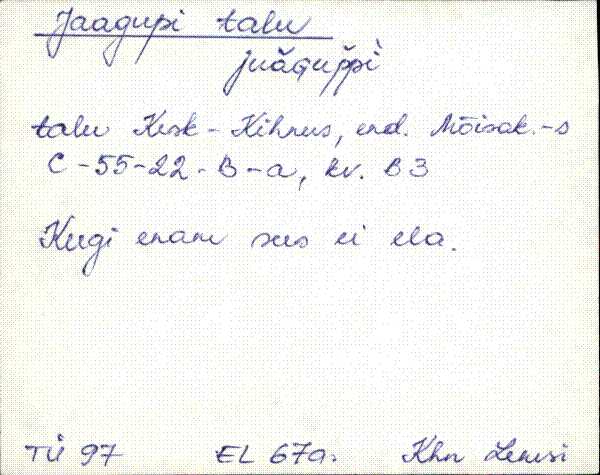 Jaagupi talu
juăguppì
talu Kesk-Kihnus, end. Mõisak.-s
C-55-22-B-a, kv. B3
Keegi enam sees ei ela.
TÜ 97 EL 67a. Khn